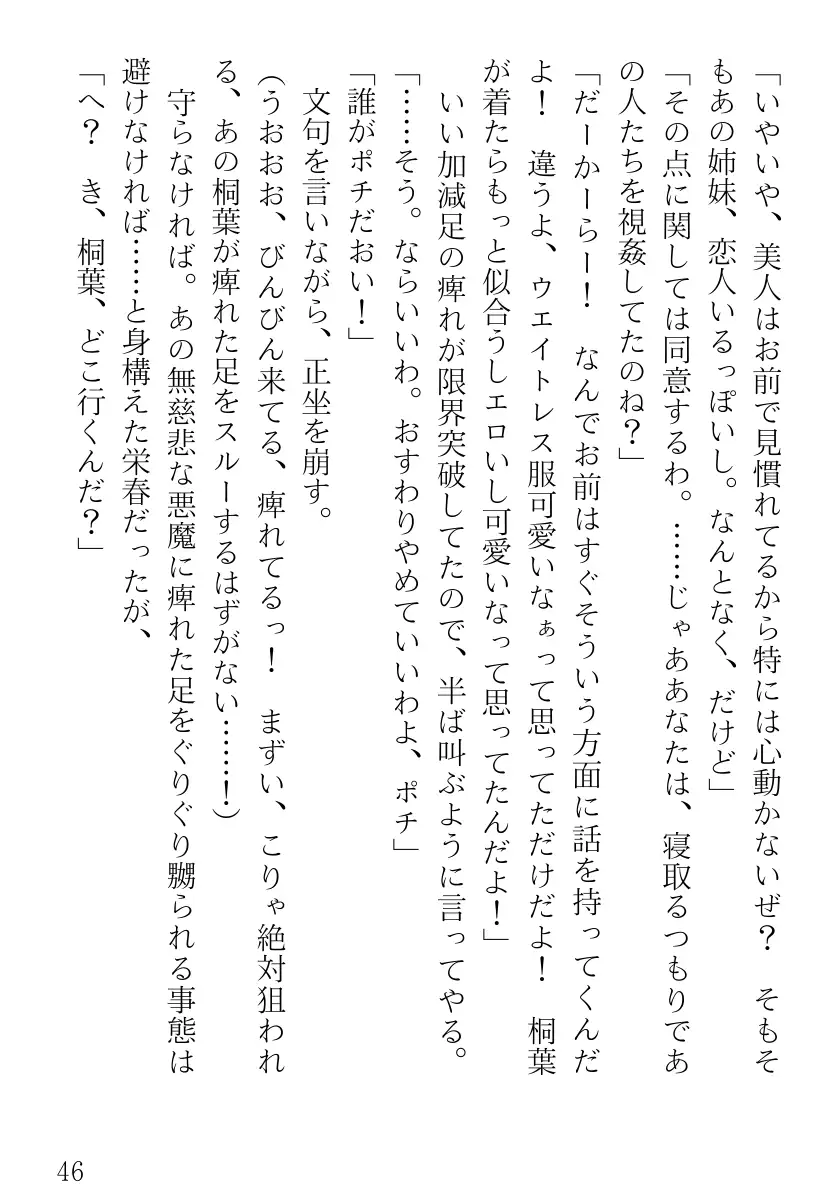 「いやいや、美人はお前で見慣れてるから特には心動かないぜ？　そもそ
もあの姉妹、恋人いるっぽいし。なんとなく、だけど」
「その点に関しては同意するわ。……じゃああなたは、寝取るつもりであ
の人たちを視姦してたのね？」
「だーかーらー！　なんでお前はすぐそういう方面に話を持ってくんだ
よ！　違うよ、ウェイトレス服可愛いなぁって思ってただけだよ！　桐葉
が着たらもっと似合うしエロいし可愛いなって思ってたんだよ！」
　いい加減足の痺れが限界突破してたので、半ば叫ぶように言ってやる。
「……そう。ならいいわ。おすわりやめていいわよ、ポチ」
「誰がポチだおい！」
　文句を言いながら、正坐を崩す。
（うおおお、びんびん来てる、痺れてるっ！　まずい、こりゃ絶対狙われ
る、あの桐葉が痺れた足をスルーするはずがない……！）
　守らなければ。あの無慈悲な悪魔に痺れた足をぐりぐり嬲られる事態は
避けなければ……と身構えた栄春だったが、
「へ？　き、桐葉、どこ行くんだ？」
46